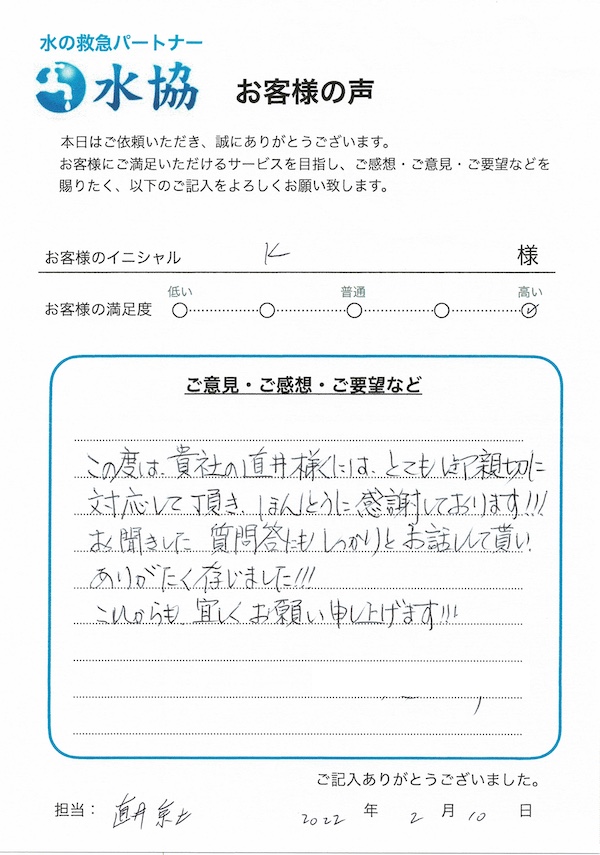 水の救急パートナー
水協 お客様の声
本日はご依頼いただき、誠にありがとうございます。
お客様にご満足いただけるサービスを目指し、ご感想・ご意見・ご要望などを
賜りたく、以下のご記入をよろしくお願い致します。
お客様のイニシャル K 様
低い 普通 高い
お客様の満足度
ご意見・ご感想・ご要望など
この度は、貴社の直井様には、とても 親切に
対応して頂き、ほんとうに感謝しております!!!
お聞きした 質問答にもしっかりとお話しして貰い
ありがたく存じました!!!
これからも、宜しくお願い申し上げます!!!
ご記入ありがとうございました。
担当: 直井 2022 年 2 月 10 日